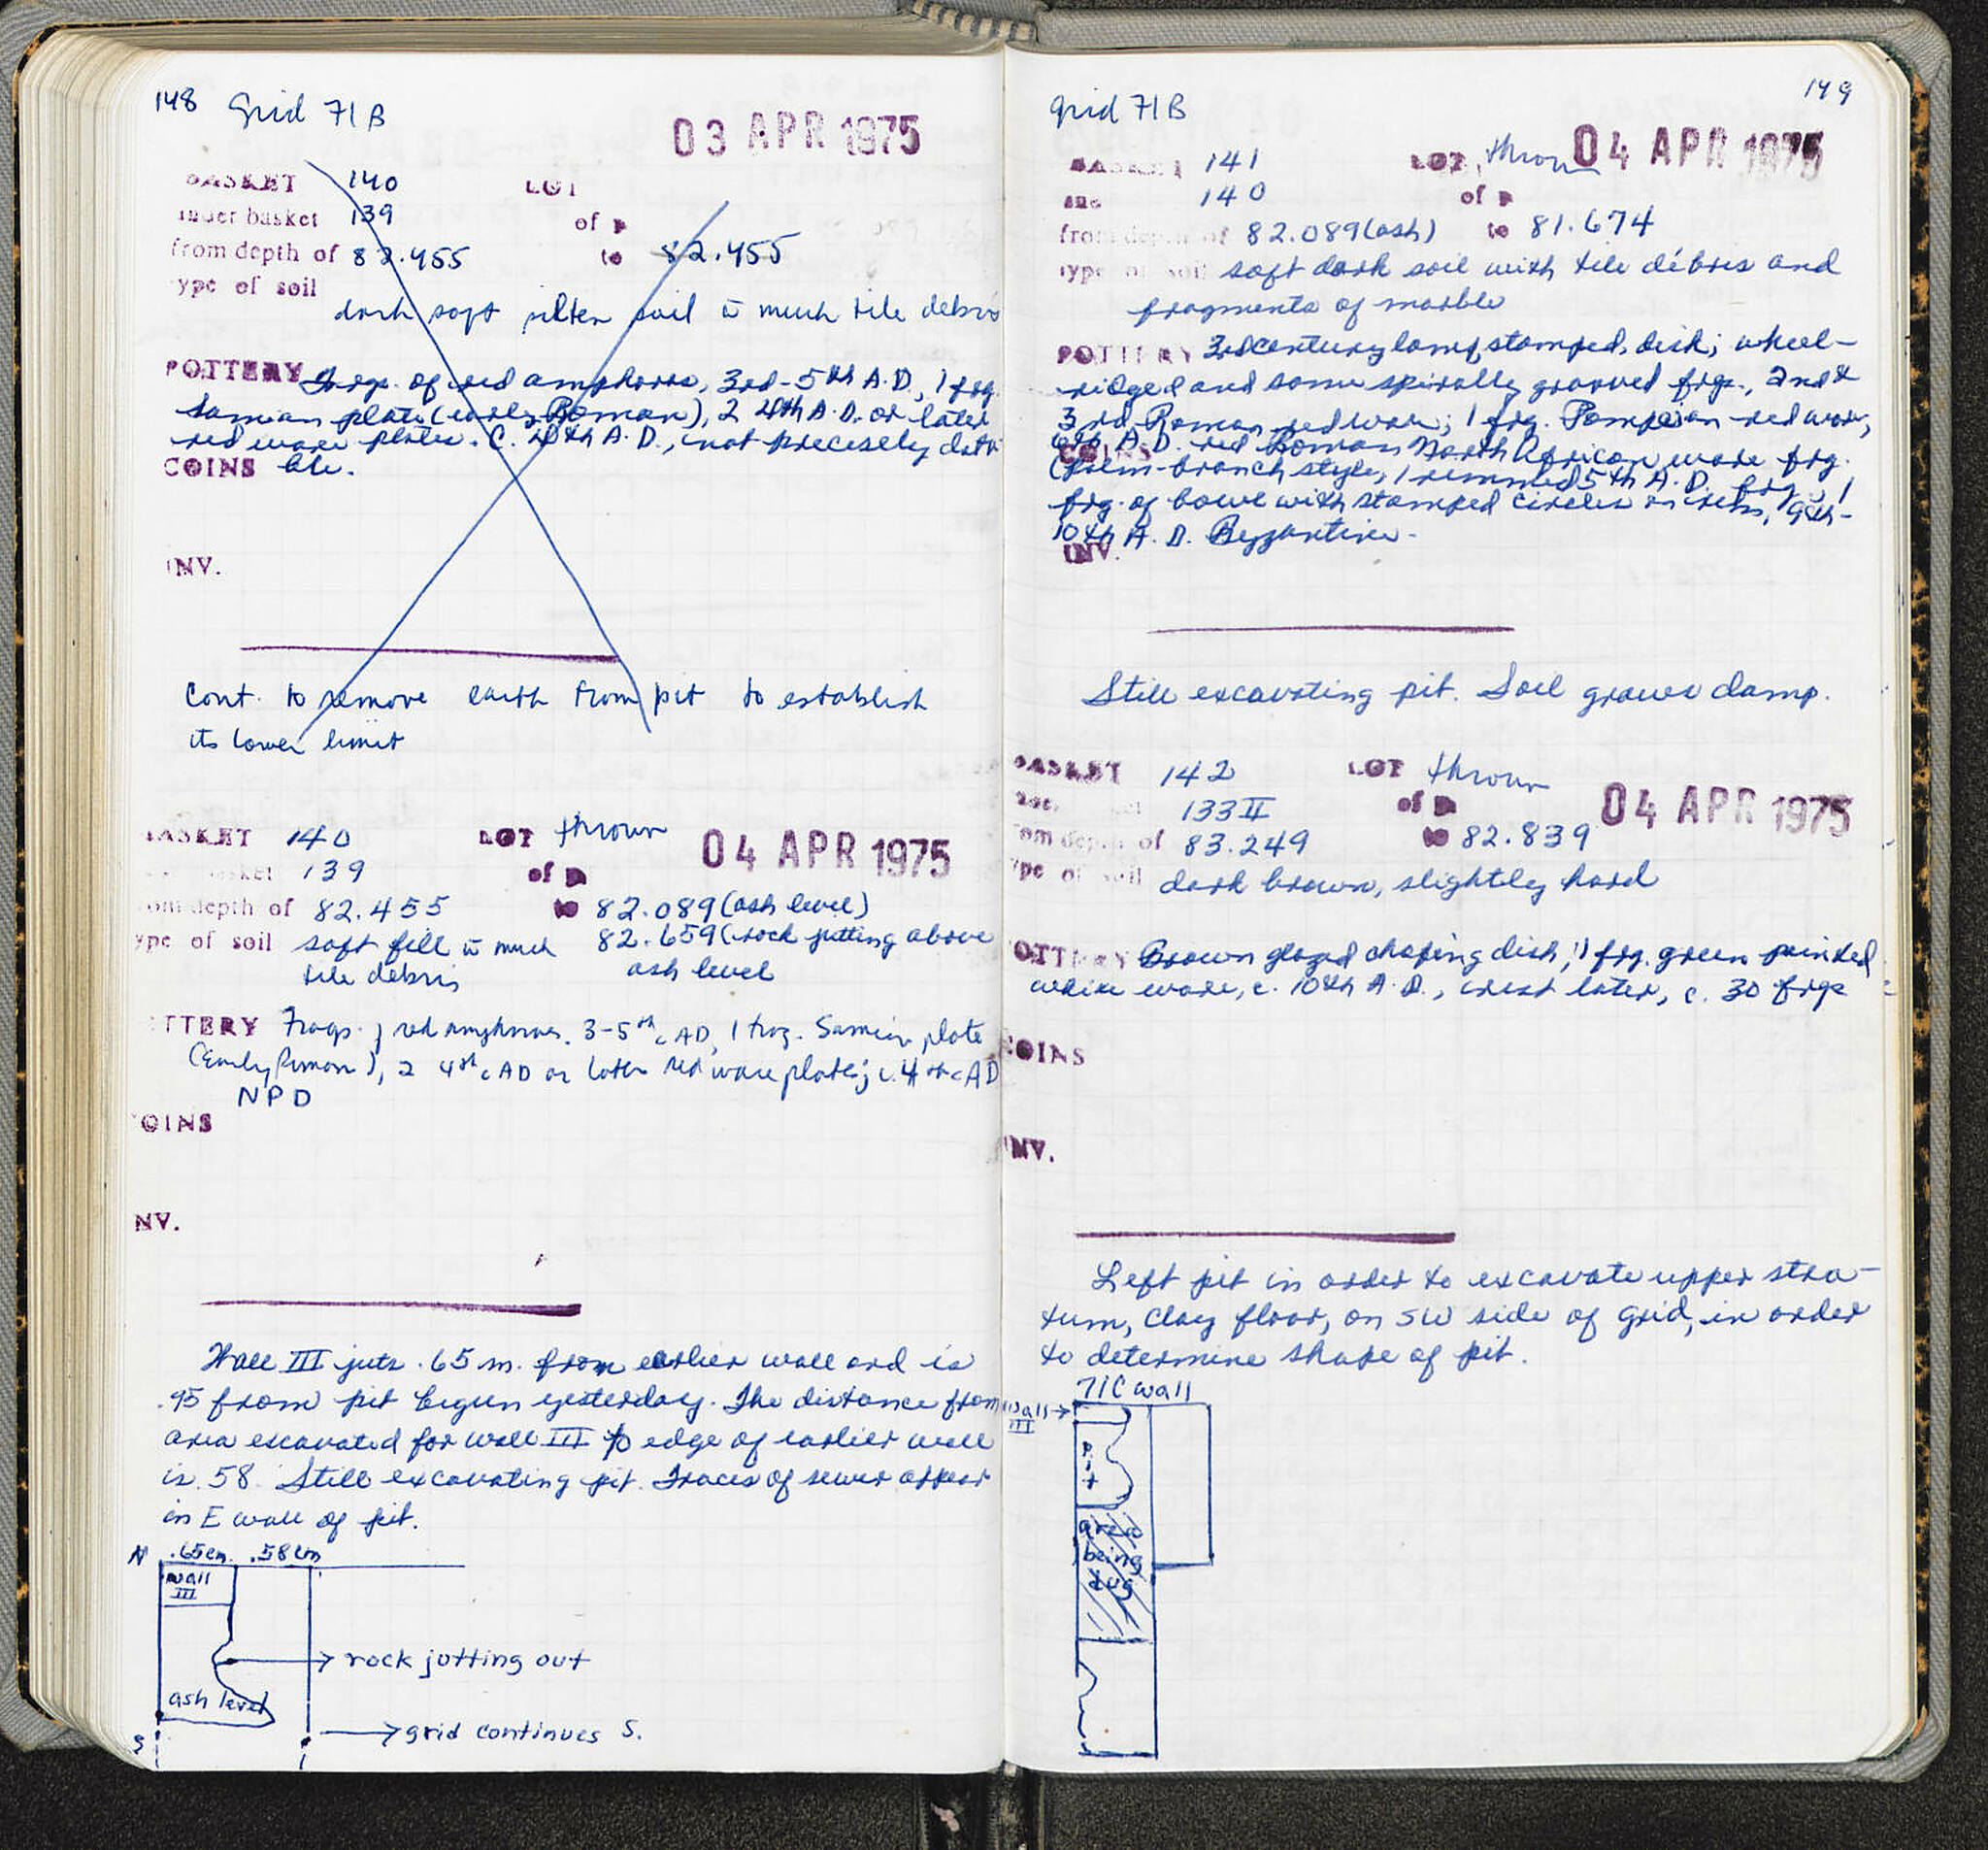 148 Grid 71B
03 APR 1975
BASKET 140 LOT
under basket 139 of P
from depth of 82.455 to 82.455
type of soil
dark soft silten soil w̄ much tile debris
POTTERY Frgs. of red amphoras, 3rd-5th A.D., 1 frg.
Samian plate (early Roman), 2 4th A.D. or later
red ware plates. C. 4th A.D., not precisely data
COINS ble.
INV.
Cont. to remove earth from pit to establish
its lower limit
BASKET 140 LOT thrown 04 APR 1975
basket 139 of P
from depth of 82.455 to 82.089 (ash level)
type of soil soft fill w̄ much 82.659 (rock jutting above
tile debris ash level
POTTERY Frags. of red amphoras. 3-5th c AD, 1 frag. Samian plate
(Early Roman), 2 4th c AD or later red ware plates; c. 4th c AD
NPD
COINS
INV.
Wall III juts .65 m. from earlier wall and is
.95 from pit begun yesterday. The distance from
area excavated for wall III to edge of earlier wall
is .58. Still excavating pit. Traces of sewer appear
in E wall of pit.
N .65cm. .58cm
wall
III
rock jutting out
ash level
grid continues S.
S
149
grid 71B
04 APR 1975
BASKET 141 LOT thrown
and 140 of P
from depth of 82.089 (ash) to 81.674
type of soil soft dark soil with tile débris and
fragments of marble
POTTERY 3rd century lamp, stamped, disk; wheel-
ridged and some spirally grooved frgs., 2nd &
3rd Roman red ware; 1 frg. Pompeian red ware,
6th A.D. red Roman North African ware frg.
COINS
(palm-branch style, 1 rimmed 5th A.D. frg., 1
frg. of bowl with stamped circles on rim, 9th-
10th A.D. Byzantine.
INV.
Still excavating pit. Soil grows damp.
BASKET 142 LOT thrown
133 II of P 04 APR 1975
from depth of 83.249 to 82.839
type of soil dark brown, slightly hard
POTTERY Brown glazed chafing dish, 1 frg. green painted
white ware, c. 10th A.D., crest later, c. 30 frgs
COINS
INV.
Left pit in order to excavate upper stra-
tum, clay floor, on SW side of grid, in order
to determine shape of pit.
71C wall
Wall
III
Pit
area
being
dug